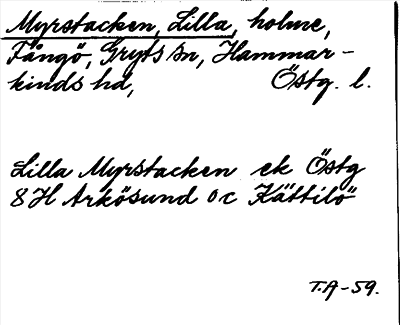 Myrstacken, Lilla, holme,
Fångö, Gryts sn, Hammar-
kinds hd, Östg. l.
Lilla Myrstacken ek Östg
8H Arkösund oc Kättilö
T.A-59.